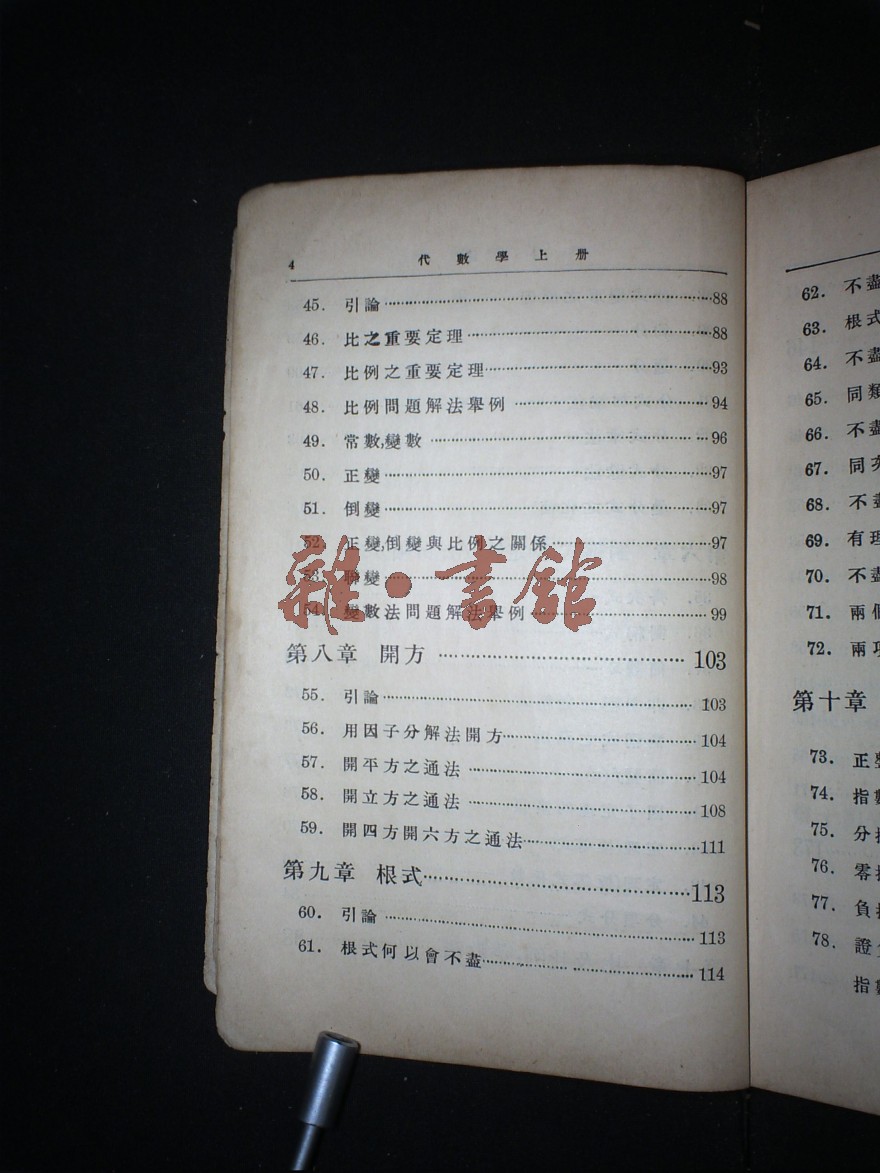 4 代數學上册
45. 引論 88
46. 比之重要定理 88
47. 比例之重要定理 93
48. 比例問題解法舉例 94
49. 常數,變數 96
50. 正變 97
51. 倒變 97
52. 正變,倒變與比例之關係 97
53. 聯變 98
54. 變數法問題解法舉例 99
第八章 開方 103
55. 引論 103
56. 用因子分解法開方 104
57. 開平方之通法 104
58. 開立方之通法 108
59. 開四方開六方之通法 111
第九章 根式 113
60. 引論 113
61. 根式何以會不盡 114
雜·書館
62. 不盡
63. 根式
64. 不盡
65. 同類
66. 不盡
67. 同次
68. 不盡
69. 有理
70. 不盡
71. 兩個
72. 兩項
第十章
73. 正整
74. 指數
75. 分指
76. 零指
77. 負指
78. 證
指數